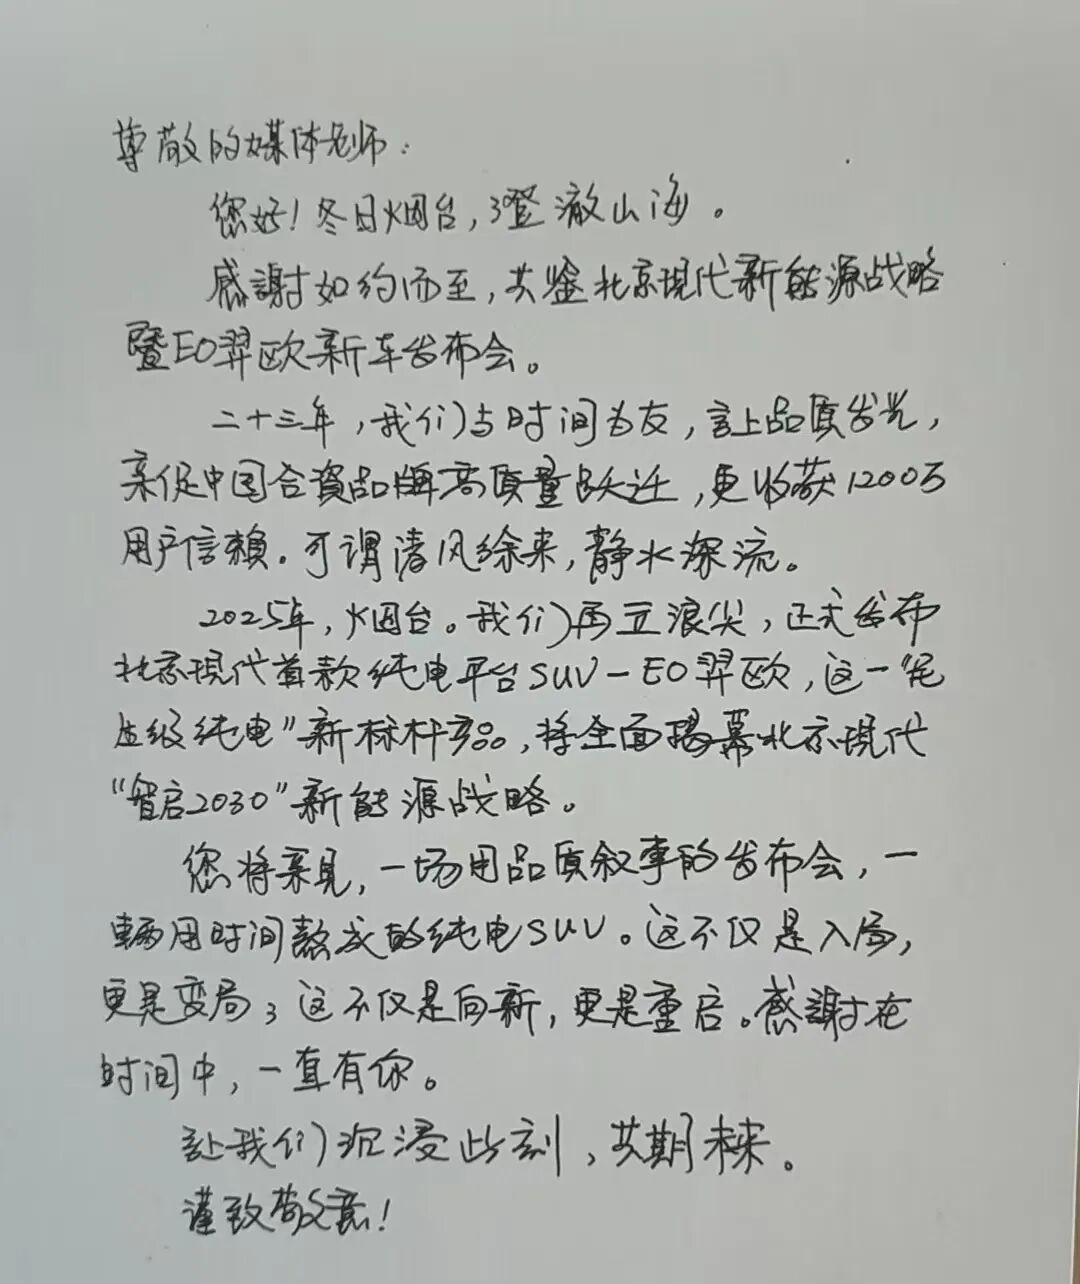 尊敬的媒体老师：
您好！冬日烟台，澄澈山海。
感謝如约而至，共鉴北京現代新能源战略
暨EO羿欧新车发布会。
二十三年，我们与时间为友，让品质发光，
亲促中国合資品牌高质量跃迁，更收获1200万
用户信賴。可谓清风徐来，静水深流。
2025年，烟台。我们再立浪尖，正式发布
北京現代首款纯电平台SUV－EO羿欧，这一“宪
法级纯电”新标杆产品，将全面揭幕北京現代
“智启2030”新能源战略。
您将亲見，一场用品质叙事的发布会，一
輛用时间熬成的纯电SUV。这不仅是入局，
更是变局；这不仅是向新，更是重启。感謝在
时间中，一直有你。
让我们沉浸此刻，共期未来。
谨致敬意！